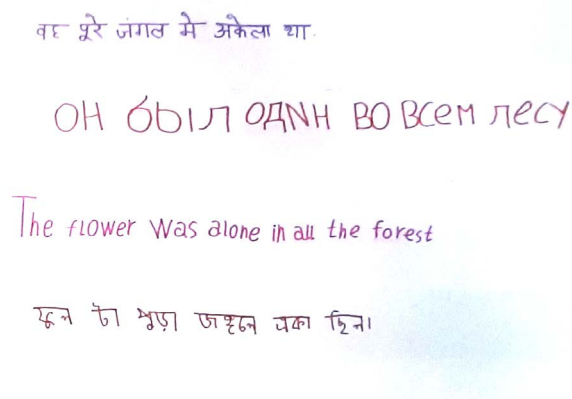 वह पूरे जंगल मे अकेला था.
ОН был ОДИН ВО ВСЕМ лесу
The flower was alone in all the forest
ফুল টা পুড়া জঙ্গলে একা ছিল।